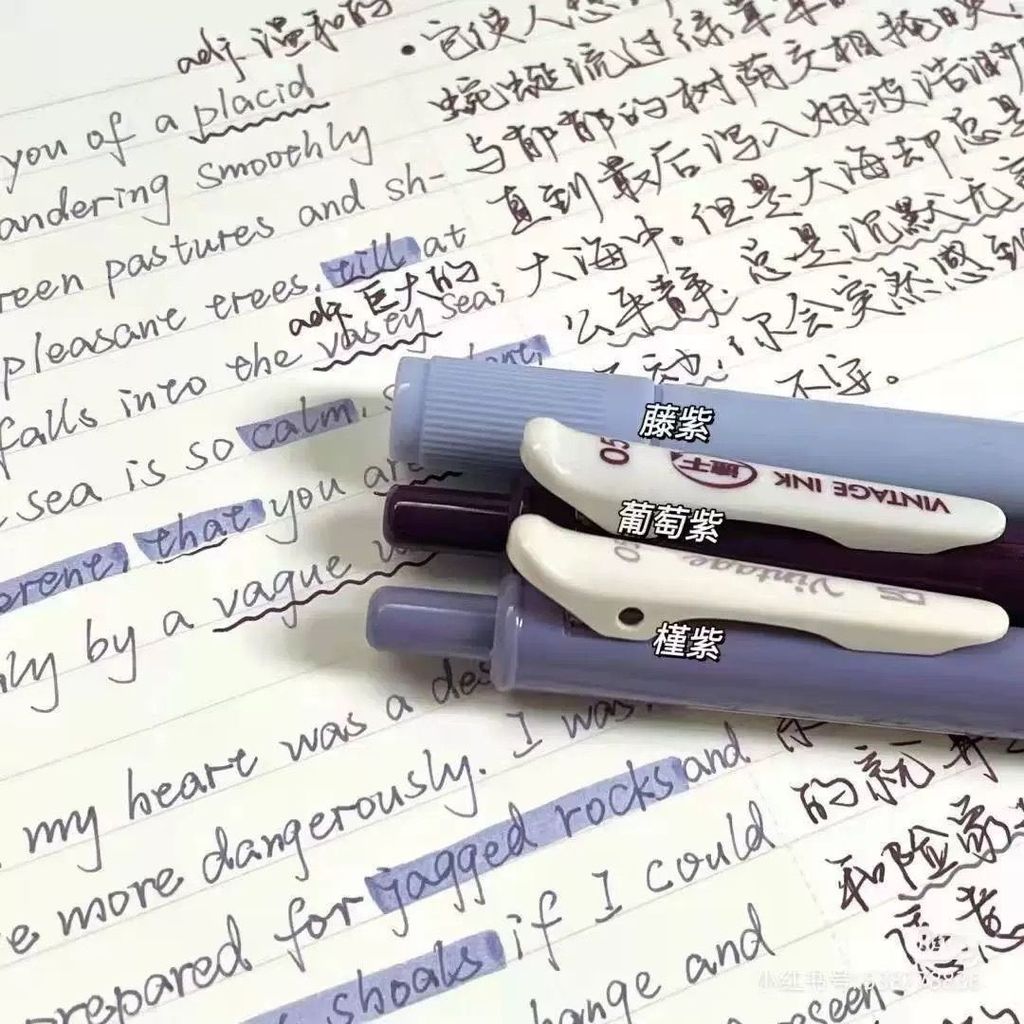 adj 温和的
you of a placid
andering smoothly
reen pastures and sh-
pleasant trees, till at
adj 巨大的
falls into the vasey sea;
sea is so calm,
that you are
by a vague
my heart was a
more dangerously. I was
repared for jagged rocks and
shoals if I could
hange and
• 它使人想
蜿蜒流过绿草
与郁郁的树荫交相掩映
直到最后泻入烟波浩渺
大海中。但是大海却总是
总是沉默无
你会突然感到
不安。
的就
和险
藤紫
VINTAGE INK
50
葡萄紫
Vintage
50
槿紫
小红书号